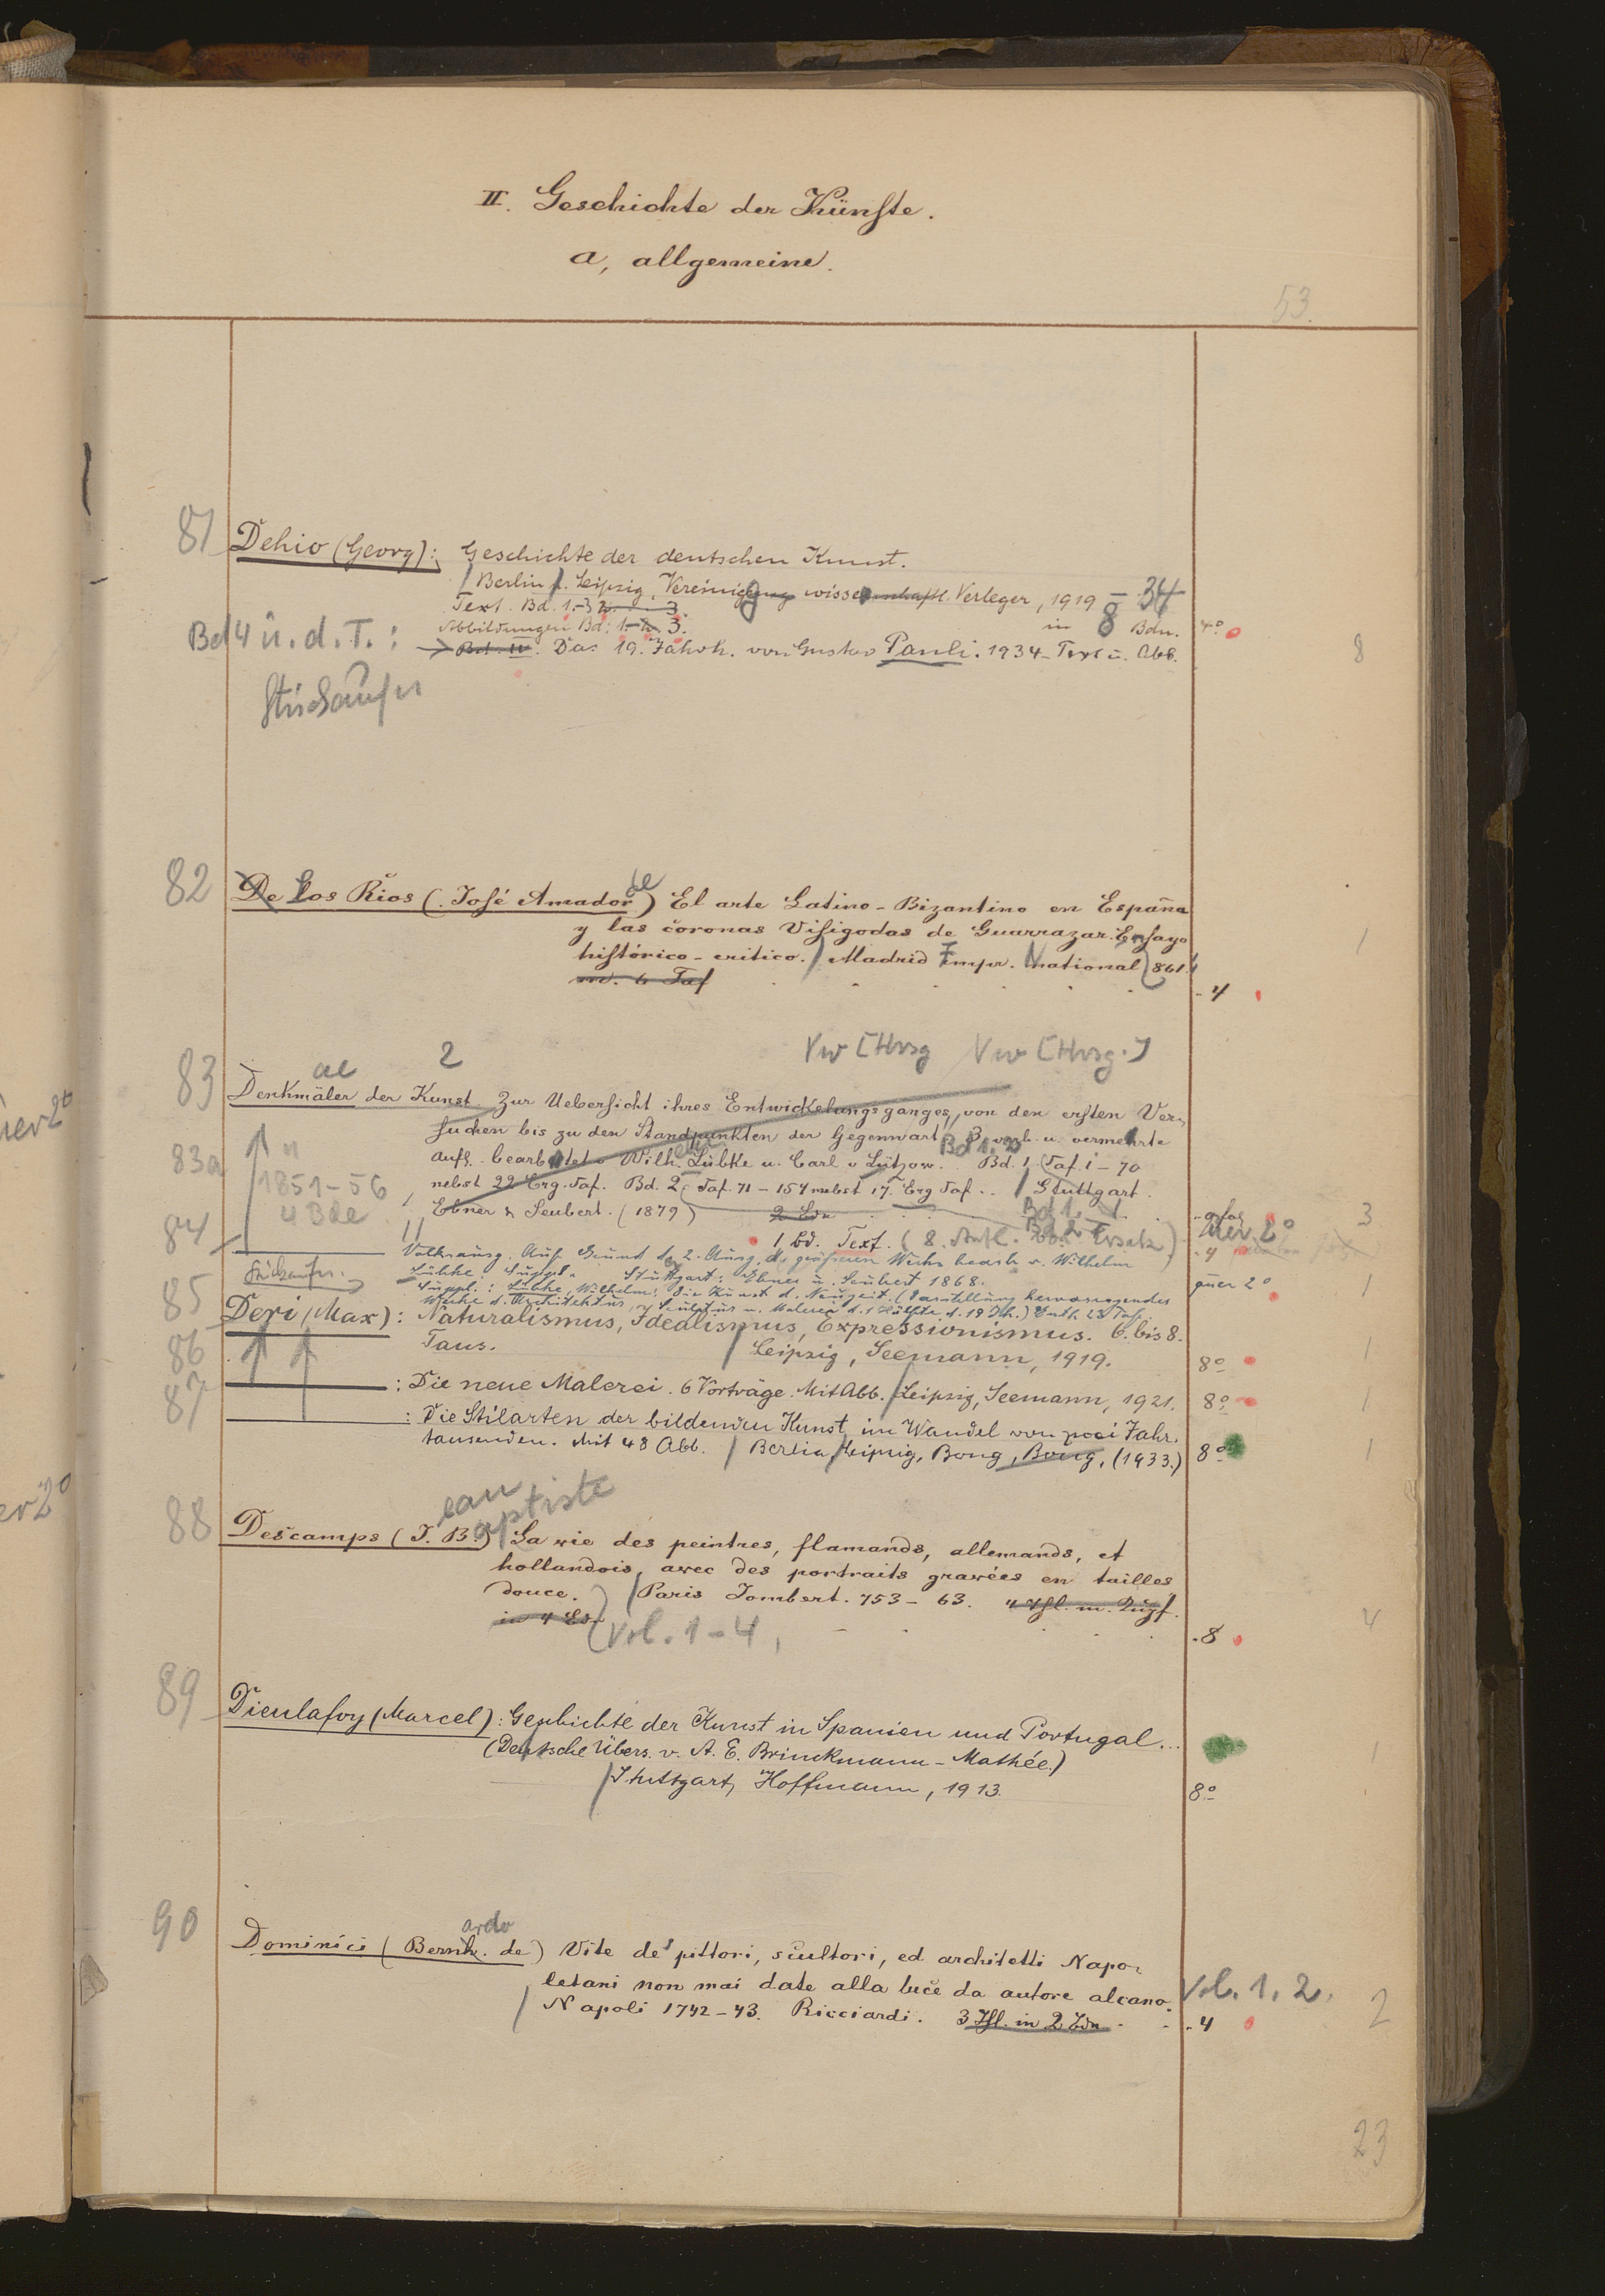 II. Geschichte der Künste.
a, allgemeine.
53.
81 Dehio (Georg): Geschichte der deutschen Kunst.
Berlin u. Leipzig, Vereinigung wissenschaftl. Verleger, 1919 – 34
Text. Bd. 1.-3
Abbildungen Bd: 1.-3. in 8 Bdn. 4°
Bd 4 u. d. T.: Bd. IV. Das 19. Jahrh. von Gustav Pauli. 1934 - Text u. Abb. 8
82 De los Rios (José Amador de) El arte Latino-Bizantino en España
y las coronas Visigodas de Guarrazar. Ensayo
histórico-critico. Madrid Impr. National 861. 1
m. 6 Taf - 4
2 Vw [Hrsg Vw [Hrsg.]
83 Denkmäler ae der Kunst Zur Uebersicht ihres Entwickelungsganges, von den ersten Ver-
suchen bis zu den Standpunkten der Gegenwart 3 verb. u. vermehrte
83a Aufl. bearbeitet v Wilh. Lübke u. Carl v Lützow. Bd. 1 (Taf. 1-70
1851-56 nebst 22 Erg. Taf. Bd. 2 (Taf. 71-157 nebst 17. Erg Taf .. Stuttgart.
4 Bde Ebner & Seubert. (1879) 2 Bde 3
84 1 Bd. Text. (8. Aufl. Ersatz) quer 2°
Volksausg. Auf Grund d. 2. Ausg. d. größeren Werks bearb v. Wilhelm
Lübke. Suppl. Stuttgart: Ebner u. Seubert 1868. quer 2° 1
Suppl.: Lübke, Wilhelm: Die Kunst d. Neuzeit. (Darstellung hervorragender
Werke d. Architektur, Sculptur u. Malerei d. 1 Hälfte d. 19 Jh.) Enth. 23 Taf.
85 Deri (Max): Naturalismus, Idealismus, Expressionismus. 6. bis 8.
86 Taus. Leipzig, Seemann, 1919. 8° 1
: Die neue Malerei. 6 Vorträge. Mit Abb. Leipzig, Seemann, 1921. 8° 1
87 : Die Stilarten der bildenden Kunst im Wandel von zwei Jahr-
tausenden. Mit 48 Abb. Berlin, Leipzig, Bong, Bong, (1933.) 8° 1
ean
aptiste
88 Descamps (J. B.) La vie des peintres, flamands, allemands, et
hollandois, avec des portraits gravées en tailles
douce. Paris Jombert. 753-63. 4 Thl. m. Kupf. 4
in 4 Bdn (Vol. 1-4, - 8
89 Dieulafoy (Marcel): Geschichte der Kunst in Spanien und Portugal...
(Deutsche Übers. v. A. E. Brinckmann-Mathée.) 1
Stuttgart, Hoffmann, 1913. 8°
ardo
90 Dominici (Bernh. de) Vite de' pittori, scultori, ed architetti Napo-
letani non mai date alla luce da autore alcano. Vol. 1. 2.
Napoli 1742-43. Ricciardi. 3 Thl. in 2 Bdn - 4 2
23